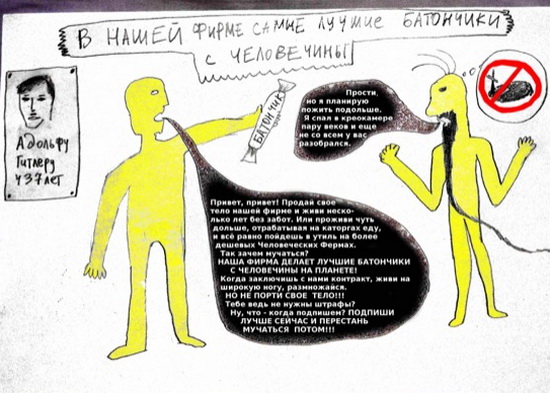 В НАШЕЙ ФИРМЕ САМЫЕ ЛУЧШИЕ БАТОНЧИКИ
С ЧЕЛОВЕЧИНЫ
АДОЛЬФУ
ГИТЛЕРУ
437 ЛЕТ
БАТОНЧИК
Прости,
но я планирую
пожить подольше.
Я спал в креокамере
пару веков и еще
не со всем у вас
разобрался.
Привет, привет! Продай свое
тело нашей фирме и живи неско-
лько лет без забот. Или проживи чуть
дольше, отрабатывая на каторгах еду,
и всё равно пойдешь в утиль на более
дешевых Человеческих Фермах.
Так зачем мучаться?
НАША ФИРМА ДЕЛАЕТ ЛУЧШИЕ БАТОНЧИКИ
С ЧЕЛОВЕЧИНЫ НА ПЛАНЕТЕ!
Когда заключишь с нами контракт, живи на
широкую ногу, размножайся.
НО НЕ ПОРТИ СВОЕ ТЕЛО!!!
Тебе ведь не нужны штрафы?
Ну, что - когда подпишем? ПОДПИШИ
ЛУЧШЕ СЕЙЧАС И ПЕРЕСТАНЬ
МУЧАТЬСЯ ПОТОМ!!!